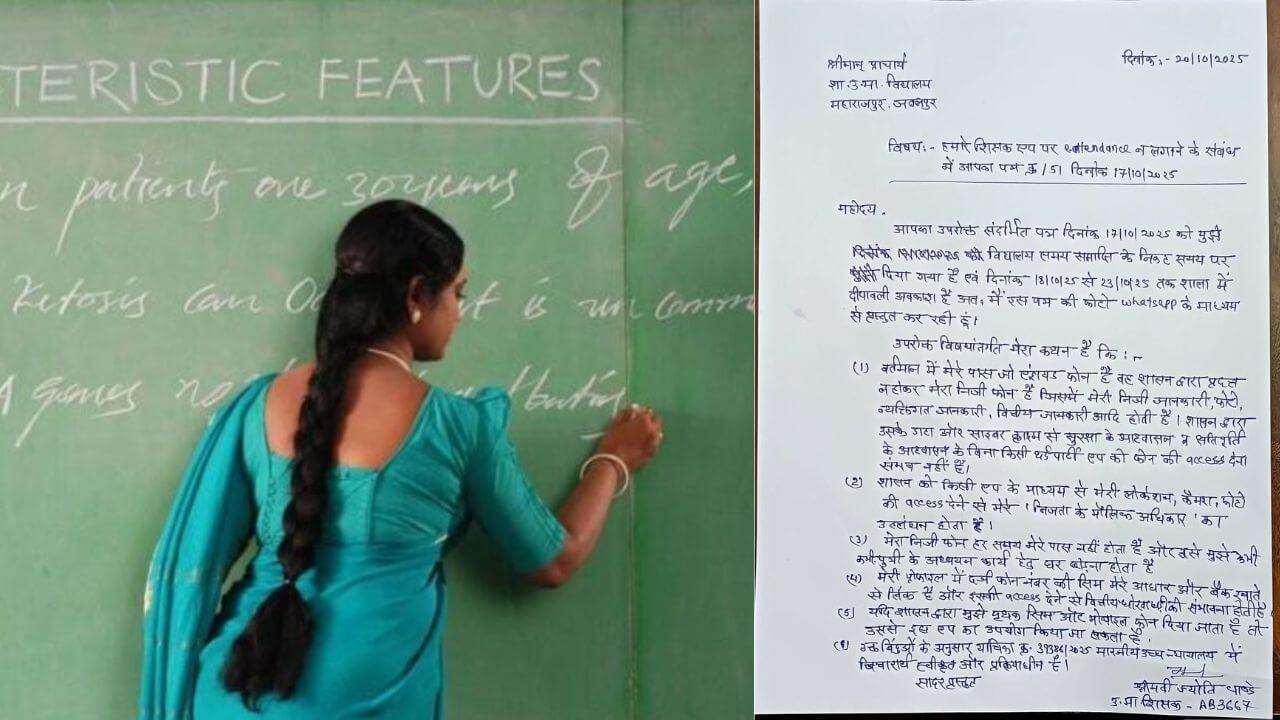 TERISTIC FEATURES
n patients are 30 years of age,
Ketosis can Oc t is uncomm
A genes
श्रीमान् प्राचार्य
दिनांक:- 20/10/2025
शा.उ.मा. विद्यालय
महाराजपुर, जबलपुर
विषय:- हमारे शिक्षक एप पर eattendance न लगाने के संबंध
में आपका पत्र क्र/51 दिनांक 17/10/2025
महोदय,
आपका उपरोक्त संदर्भित पत्र दिनांक 17/10/2025 को मुझे
विद्यालय समय समाप्ति के निकट समय पर
दिया गया है एवं दिनांक 18/10/25 से 23/10/25 तक शाला में
दीपावली अवकाश है अतः मैं इस पत्र की फोटो whatsapp के माध्यम
से प्रस्तुत कर रही हूं।
उपरोक्त विषयांतर्गत मेरा कथन है कि :-
(1) वर्तमान में मेरे पास जो एंड्रायड फोन है वह शासन द्वारा प्रदत्त
न होकर मेरा निजी फोन है जिसमें मेरी निजी जानकारी, फोटो,
व्यक्तिगत जानकारी, वित्तीय जानकारी आदि होती है। शासन द्वारा
उसके डाटा और साइबर क्राइम से सुरक्षा के आश्वासन व क्षतिपूर्ति
के आश्वासन के बिना किसी थर्ड पार्टी एप को फोन की access देना
संभव नहीं है।
(2) शासन को किसी एप के माध्यम से मेरी लोकेशन, कैमरा, फोटो
की access देने से मेरे 'निजता के मौलिक अधिकार' का
उल्लंघन होता है।
(3) मेरा निजी फोन हर समय मेरे पास नहीं होता है और इसे मुझे कभी
कभी पुत्री के अध्ययन कार्य हेतु घर छोड़ना होता है
(4) मेरी प्रोफाइल में दर्ज फोन नंबर की सिम मेरे आधार और बैंक खाते
से लिंक है और इसकी access देने से वित्तीय धोखाधड़ी की संभावना होती है।
(5) यदि शासन द्वारा मुझे पृथक सिम और मोबाइल फोन दिया जाता है तो
उससे इस एप का उपयोग किया जा सकता है।
(6) उक्त बिंदुओं के अनुसार याचिका क्र. 39386/2025 माननीय उच्च न्यायालय में
विचारार्थ स्वीकृत और प्रक्रियाधीन है।
सादर प्रस्तुत
श्रीमती ज्योति पाण्डे
उ.मा शिक्षक - AB3667